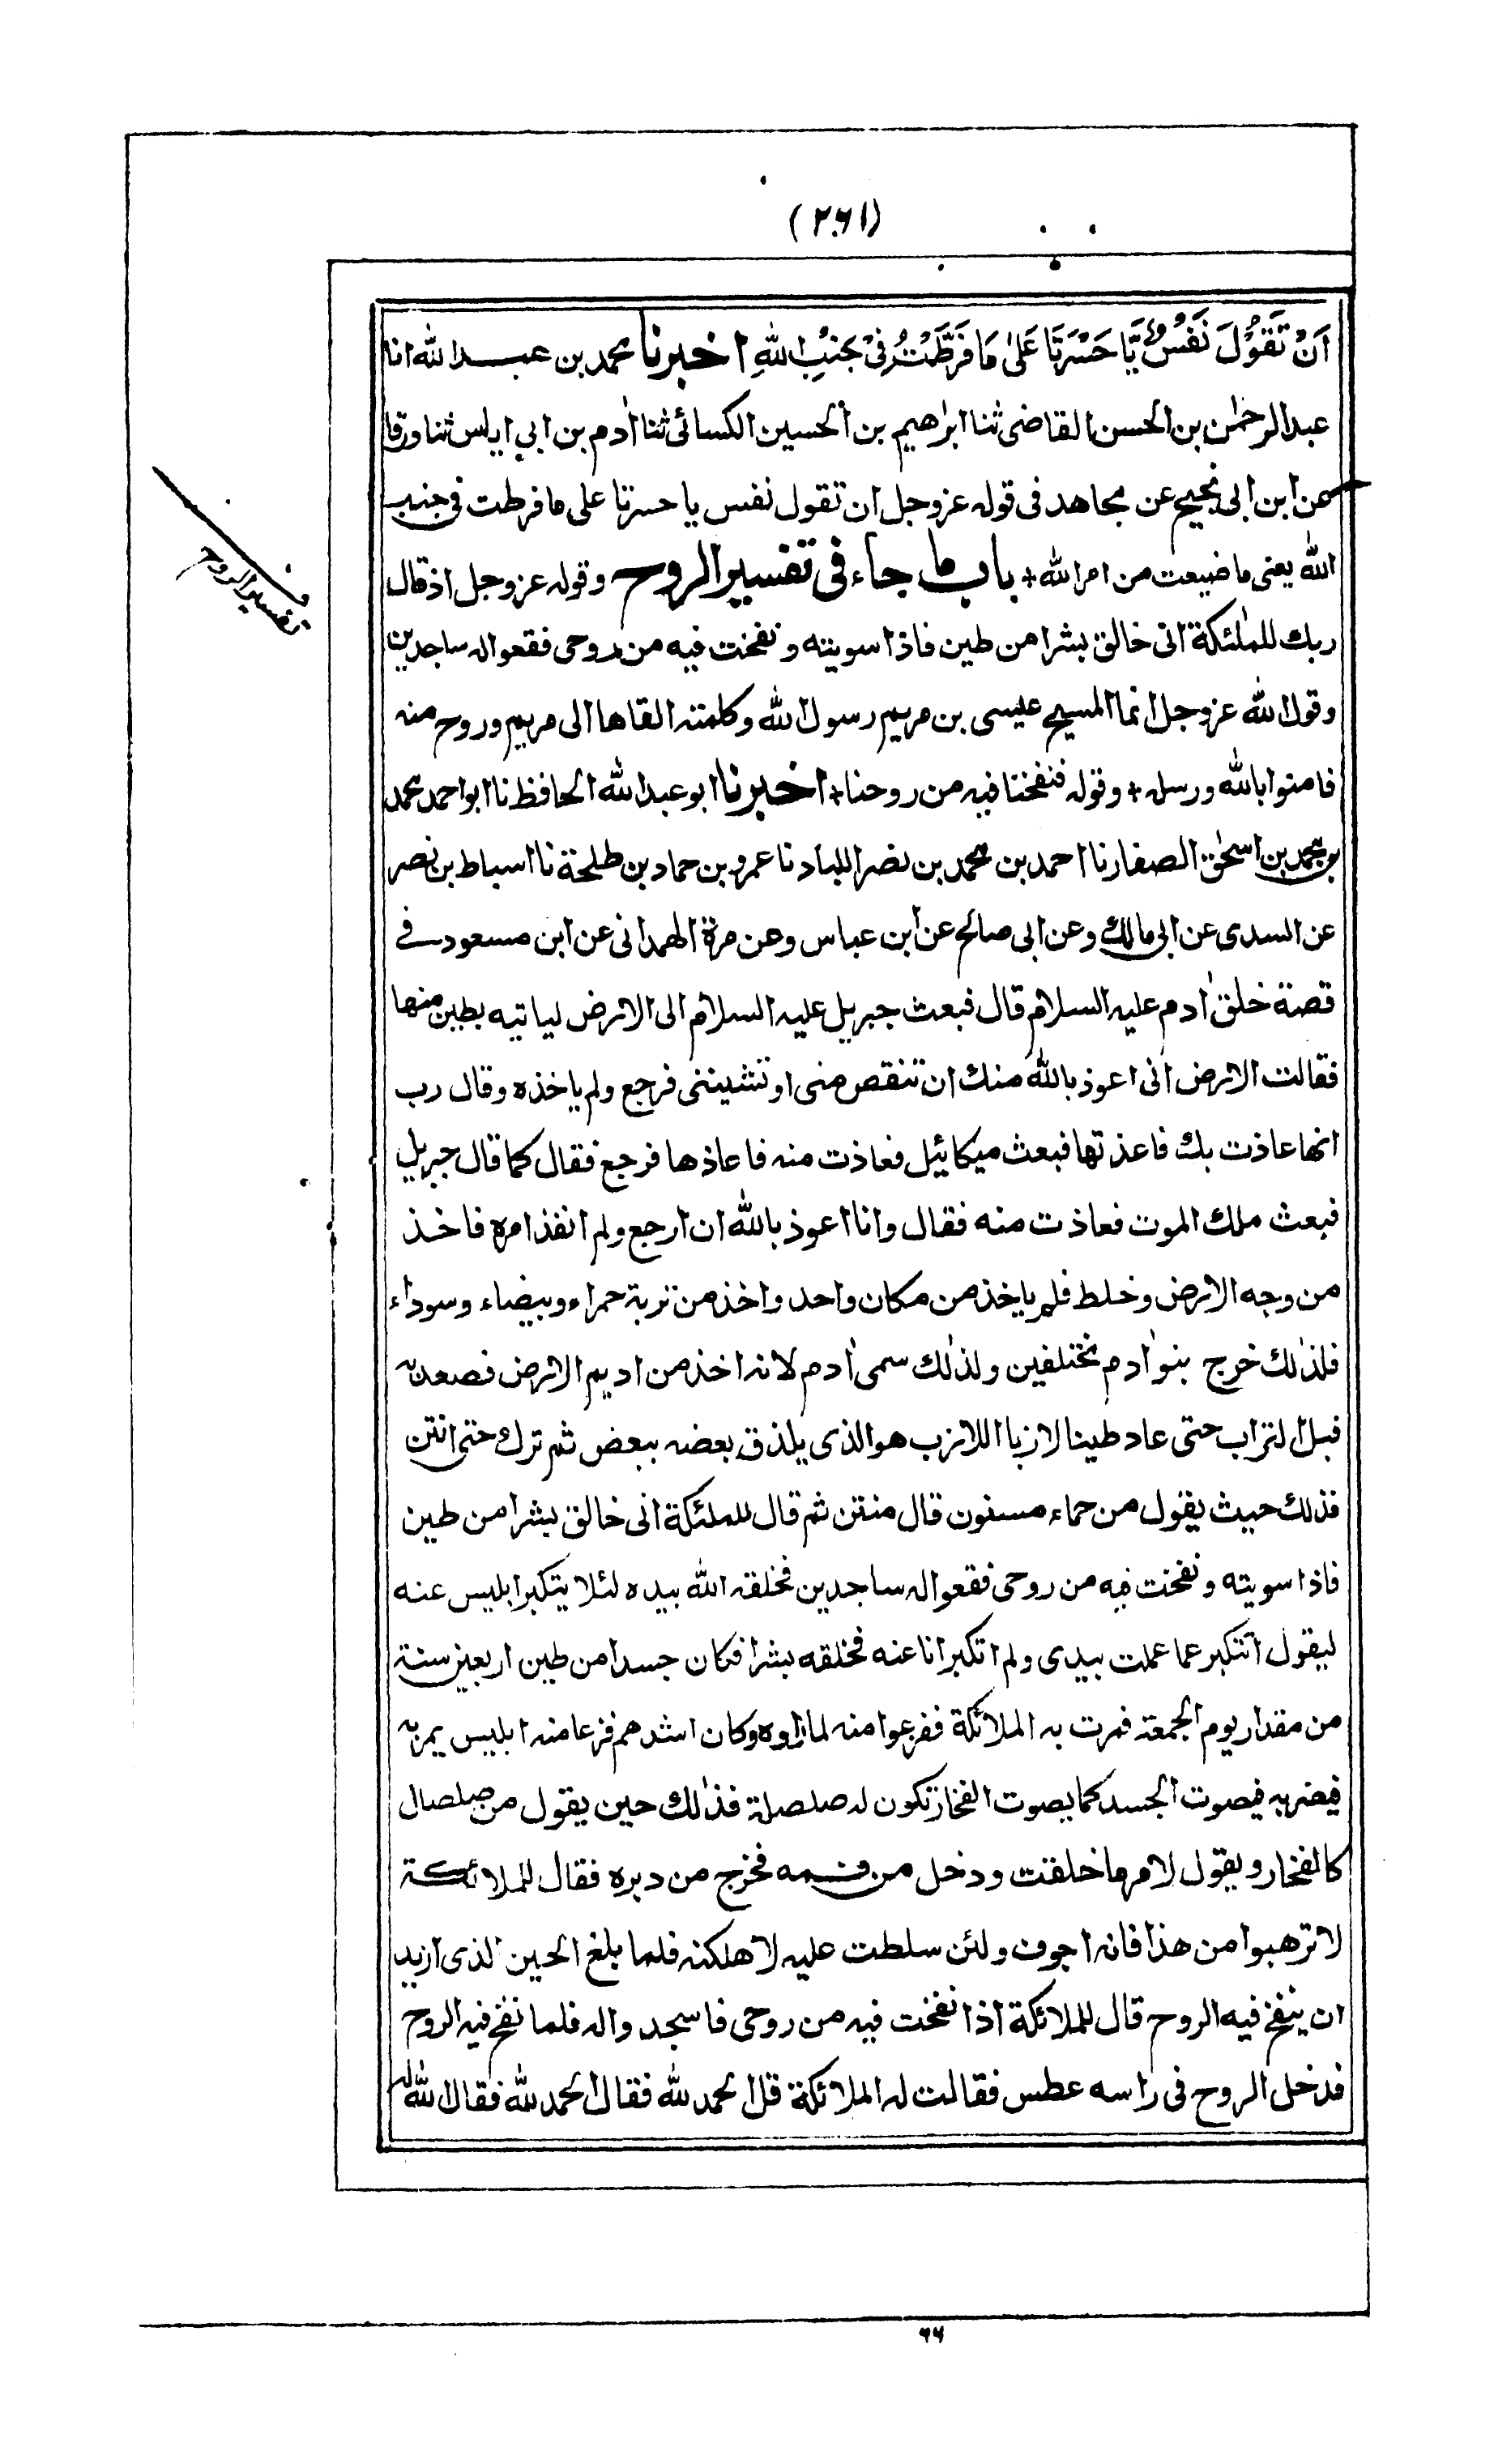 (٢٦١)
اَنْ تَقُوْلَ نَفْسٌ يَّا حَسْرَتَا عَلٰى مَا فَرَّطْتُ فِىْ جَنْبِ اللهِ اخبرنا محمد بن عبد الله انا
عبد الرحمٰن بن الحسن القاضى ثنا ابرٰهيم بن الحسين الكسائى ثنا اٰدم بن ابى اياس ثنا ورقا
عن ابن ابى نجيح عن مجاهد فى قوله عزوجل ان تقول نفس يا حسرتا على ما فرطت فى جنب
الله يعنى ما ضيعت من امر الله + باب ما جاء فى تفسير الروح وقوله عزوجل اذ قال
ربك للملٰئكة انى خالق بشرا من طين فاذا سويته ونفخت فيه من روحى فقعوا له ساجدين
وقول الله عزوجل انما المسيح عيسى بن مريم رسول الله وكلمته القاها الى مريم وروح منه
فامنوا بالله ورسله + وقوله فنفخنا فيه من روحنا + اخبرنا ابو عبد الله الحافظ نا ابو احمد محمد
بن محمد بن اسحٰق الصفار نا احمد بن محمد بن نصر اللباد نا عمرو بن حماد بن طلحة نا اسباط بن نصر
عن السدى عن ابى مالك وعن ابى صالح عن ابن عباس وعن مرة الهمدانى عن ابن مسعود فى
قصة خلق اٰدم عليه السلام قال فبعث جبريل عليه السلام الى الارض لياتيه بطين منها
فقالت الارض انى اعوذ بالله منك ان تنقص منى او تشيننى فرجع ولم ياخذه وقال رب
انها عاذت بك فاعذتها فبعث ميكائيل فعاذت منه فاعاذها فرجع فقال كما قال جبريل
فبعث ملك الموت فعاذت منه فقال وانا اعوذ بالله ان ارجع ولم انفذ امره فاخذ
من وجه الارض وخلط فلم ياخذ من مكان واحد واخذ من تربة حمراء وبيضاء وسوداء
فلذٰلك خرج بنو اٰدم مختلفين ولذٰلك سمى اٰدم لانه اخذ من اديم الارض فصعد به
فبل التراب حتى عاد طينا لازبا اللازب هو الذى يلذق بعضه ببعض ثم ترك حتى انتن
فذلك حيث يقول من حماء مسنون قال منتن ثم قال للملئكة انى خالق بشرا من طين
فاذا سويته ونفخت فيه من روحى فقعوا له ساجدين فخلقه الله بيده لئلا يتكبر ابليس عنه
ليقول اتتكبر عما عملت بيدى ولم اتكبر انا عنه فخلقه بشرا فكان جسدا من طين اربعين سنة
من مقدار يوم الجمعة فمرت به الملائكة ففزعوا منه لما راوه وكان اشدهم فزعا منه ابليس يمر به
فيضربه فيصوت الجسد كما يصوت الفخار تكون له صلصلة فذٰلك حين يقول من صلصال
كالفخار ويقول لامر ما خلقت ودخل من فمه فخرج من دبره فقال للملائكة
لا ترهبوا من هذا فانه اجوف ولئن سلطت عليه لاهلكنه فلما بلغ الحين الذى اريد
ان ينفخ فيه الروح قال للملائكة اذا نفخت فيه من روحى فاسجدوا له فلما نفخ فيه الروح
فدخل الروح فى راسه عطس فقالت له الملائكة قل الحمد لله فقال الحمد لله فقال الله له
تفسير الروح
٦٦